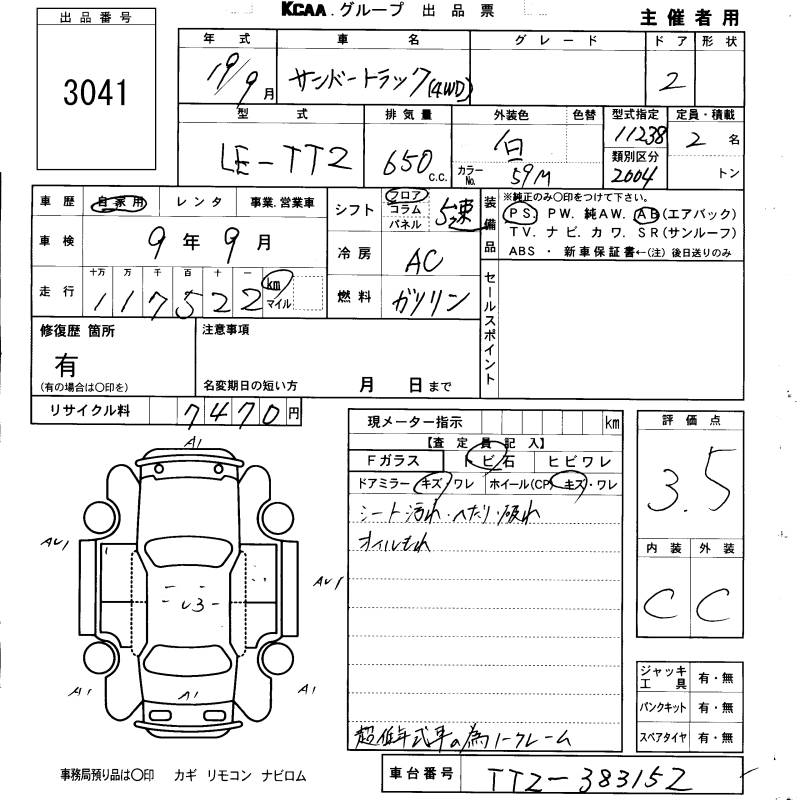 出品番号
3041
KCAA.グループ 出品票
主催者用
年式 車名 グレード ドア 形状
19/9月 サンバートラック(4WD) 2
型式 排気量 外装色 色替 型式指定 定員・積載
LE-TT2 650 C.C. 白 11238 2 名
カラーNo. 59M 類別区分 2004 トン
車歴 自家用 レンタ 事業.営業車
車検 9年9月
走行 十万 万 千 百 十 一
117522 km マイル
シフト フロア コラム パネル 5速
冷房 AC
燃料 ガソリン
装備品
※純正のみ〇印をつけて下さい。
PS. PW. 純AW. AB(エアバック)
TV. ナビ. カワ. SR(サンルーフ)
ABS ・ 新車保証書←(注) 後日送りのみ
セールスポイント
修復歴 箇所
有
(有の場合は〇印を)
注意事項
名変期日の短い方 月 日まで
リサイクル料 7470円
現メーター指示 km
【査定員記入】
Fガラス トビ石 ヒビワレ
ドアミラー キズ/ワレ ホイール(CP) キズ・ワレ
シート汚れ・へたり・破れ
オイルもれ
超低年式車の為ノークレーム
評価点
3.5
内装 外装
C C
ジャッキ工具 有・無
パンクキット 有・無
スペアタイヤ 有・無
A1
AU1
AU1
U3
A1 A1 A1
事務局預り品は〇印 カギ リモコン ナビロム
車台番号 TT2-383152